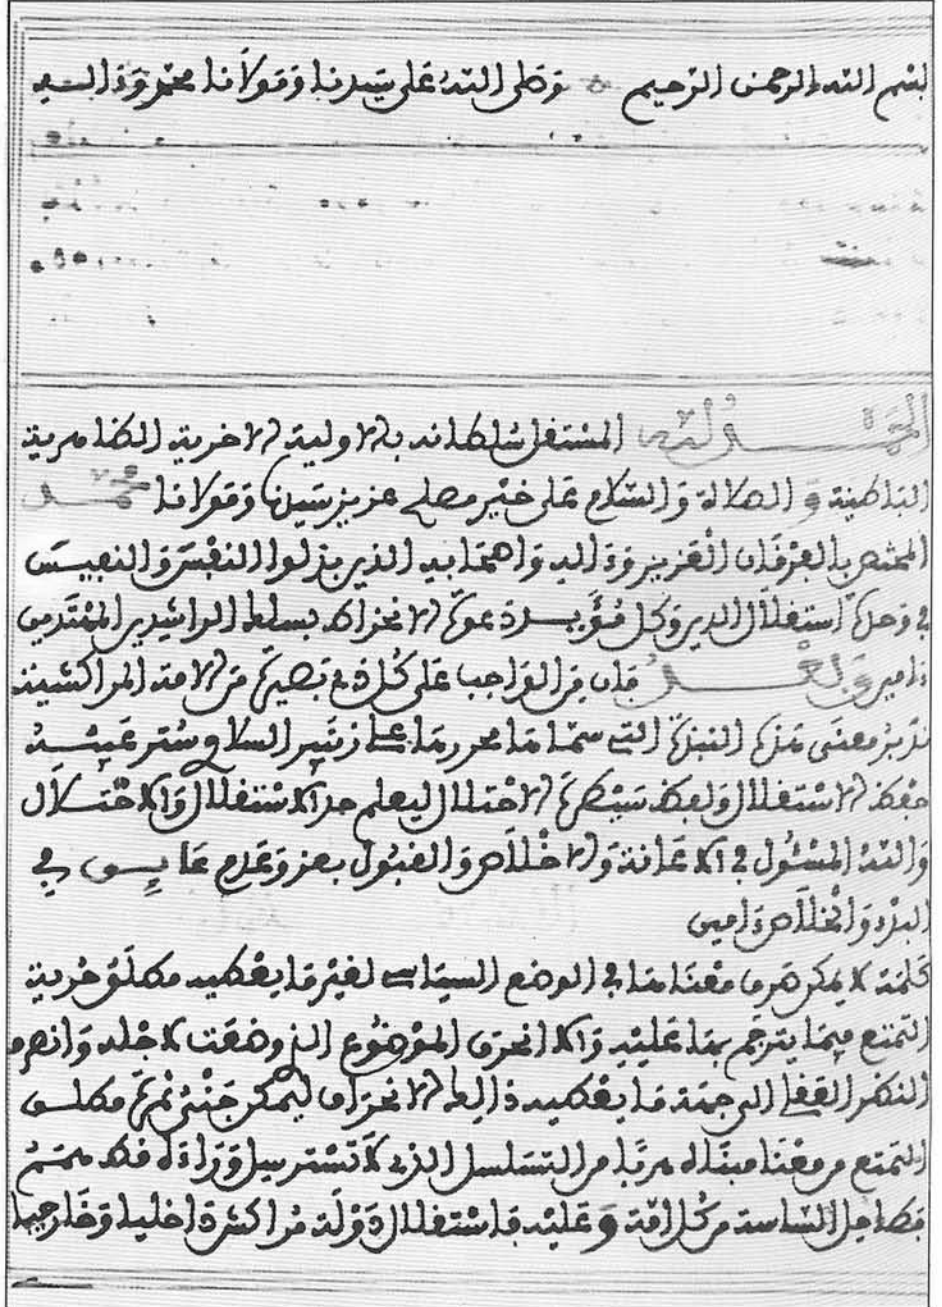 بسم الله الرحمن الرحيم وصلى الله على سيدنا ومولانا محمد وءاله
الحمد لله المستقل سلطانه بالاولية الاخرية الظاهرية
الباطنية و الصلاة والسلام على خير مصلح عزيز سيدنا ومولانا محمد
المختص بالعرفان العزيز وءاله واصحابه الذين بذلوا النفس والنفيس
في استقلال الدين وكل بسلط الراشدين المهتدين
ءامين وبعد فان من الواجب على كل ذي بصيرة من الامة المراكشية
تدبر معنى هذه النبذة التي سماها محررها علي زنيبر السلاوي ستر عيبه
حفظ الاستقلال ولفظ سيطرة الاحتلال ليعلم حد الاستقلال والاحتلال
والله المسئول في الاعانة والاخلاص والقبول بعز وعدم
البدء والخلاص ءامين
كلمة لا يمكن صرف معناها في الوضع السياسي لغير ما يعطيه مطلق حرية
التمتع فيما يترجم بها عليه والا انحرف الموضوع الذي وضعت لاجله وانصرف
النظر الى جهة ما يعطيه ذالك الانحراف ليمكن جني ثمرة مطلق
التمتع من معنا مبناه هربا من التسلسل الذي لا تسترسل وراءه
فطاحل الساسة من كل امة و عليه فاستقلال دولة مراكش داخليا وخارجيا